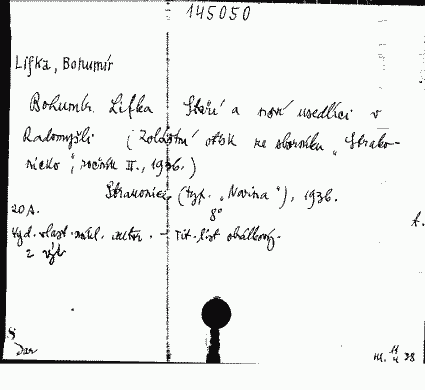 145050
Lifka, Bohumír
Bohumír Lifka Staří a noví usedlíci v
Radomyšli (Zvláštní otisk ze sborníku „Strako-
nicko", ročník II., 1936.)
Strakonice (typ. „Novina"), 1936.
8°
20 s.
Vyd. vlast. nákl. autor. - Tit. list obálkový.
2 výt.
t.
S
Dar